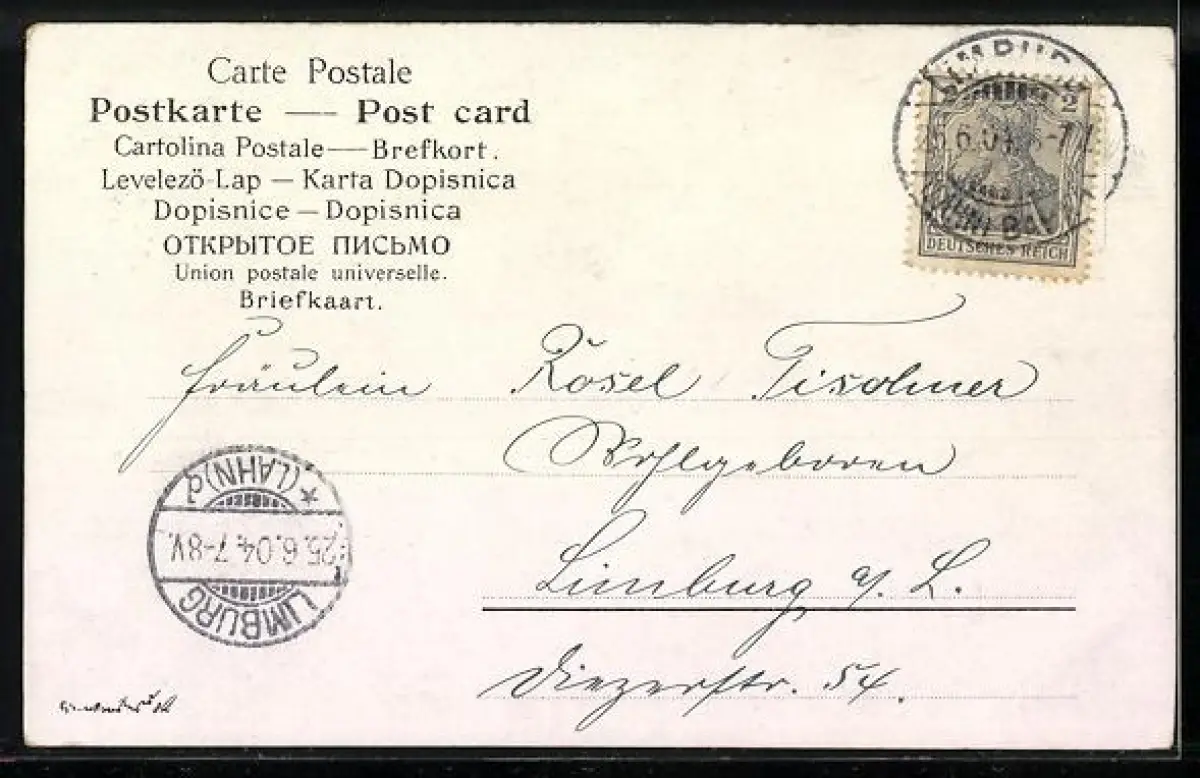 Carte Postale
Postkarte — Post card
Cartolina Postale — Brefkort.
Levelező-Lap — Karta Dopisnica
Dopisnice — Dopisnica
ОТКРЫТОЕ ПИСЬМО
Union postale universelle.
Briefkaart.
2
25.6.04. 6-7
DEUTSCHES REICH
Fräulein Rösel Tischner
Wohlgeboren
Limburg a/L.
Diezerstr. 54.
LIMBURG
25.6.04. 7-8V.
* (LAHN) d